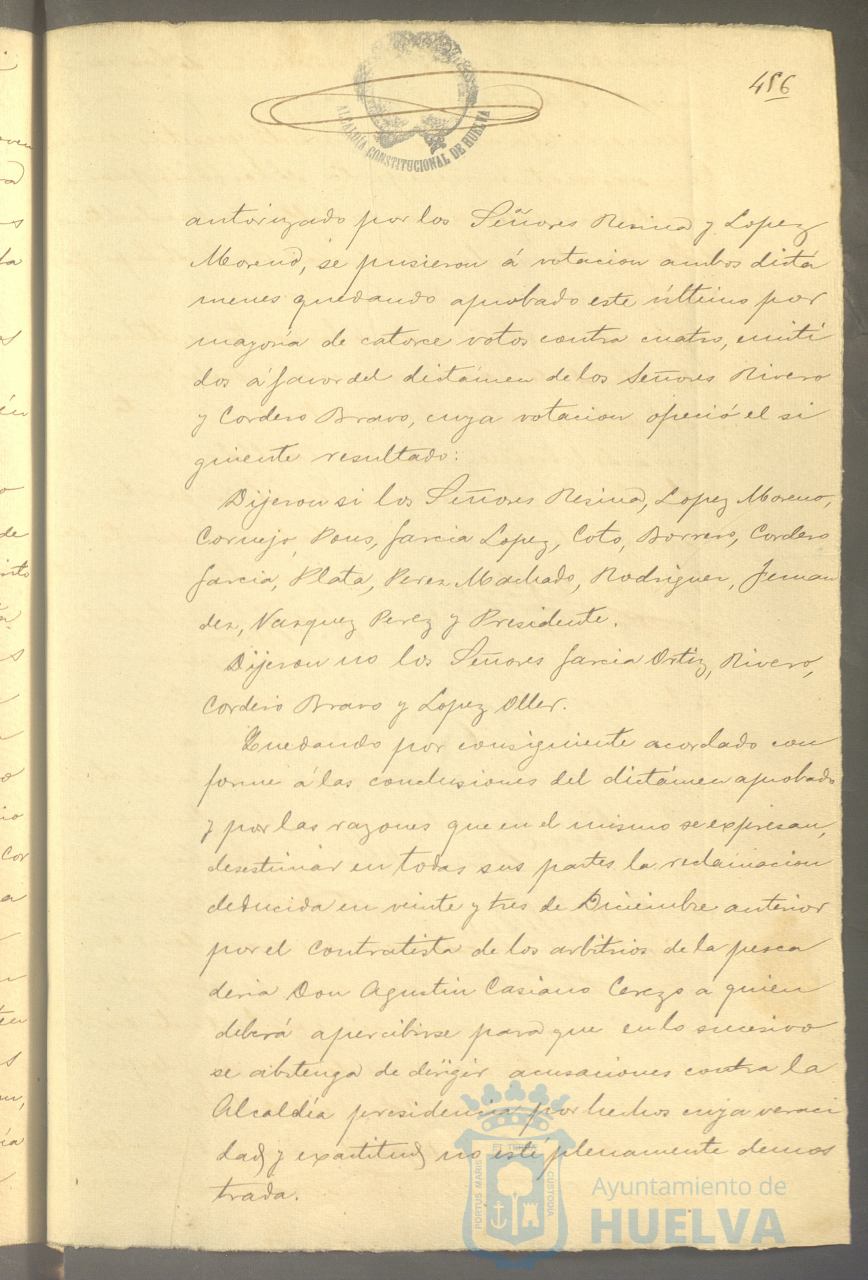 456
ALCALDÍA CONSTITUCIONAL DE HUELVA
autorizado por los Señores Resina y Lopez
Moreno, se pusieron á votacion ambos dictá
menes quedando aprobado este último por
mayoría de catorce votos contra cuatro, emiti
dos á favor del dictámen de los Señores Rivero
y Cordero Bravo, cuya votacion ofreció el si
guiente resultado:
Dijeron si los Señores Resina, Lopez Moreno,
Cornejo, Pons, Garcia Lopez, Coto, Borrero, Cordero
Garcia, Plata, Perez Machado, Rodriguez, Fernan
dez, Vazquez Perez y Presidente.
Dijeron no los Señores Garcia Ortiz, Rivero,
Cordero Bravo y Lopez Oller.
Quedando por consiguiente acordado con
forme á las conclusiones del dictámen aprobado
y por las razones que en el mismo se expresan,
desestimar en todas sus partes la reclamacion
deducida en veinte y tres de Diciembre anterior
por el contratista de los arbitrios de la pesca
deria Don Agustin Casiano Cerezo a quien
deberá apercibirse para que en lo sucesivo
se abstenga de dirigir acusaciones contra la
Alcaldía presidencia por hechos cuya veraci
dad y exactitud no esté plenamente demos
trada.
PORTUS MARIS
ET TERRE
CUSTODIA
Ayuntamiento de
HUELVA